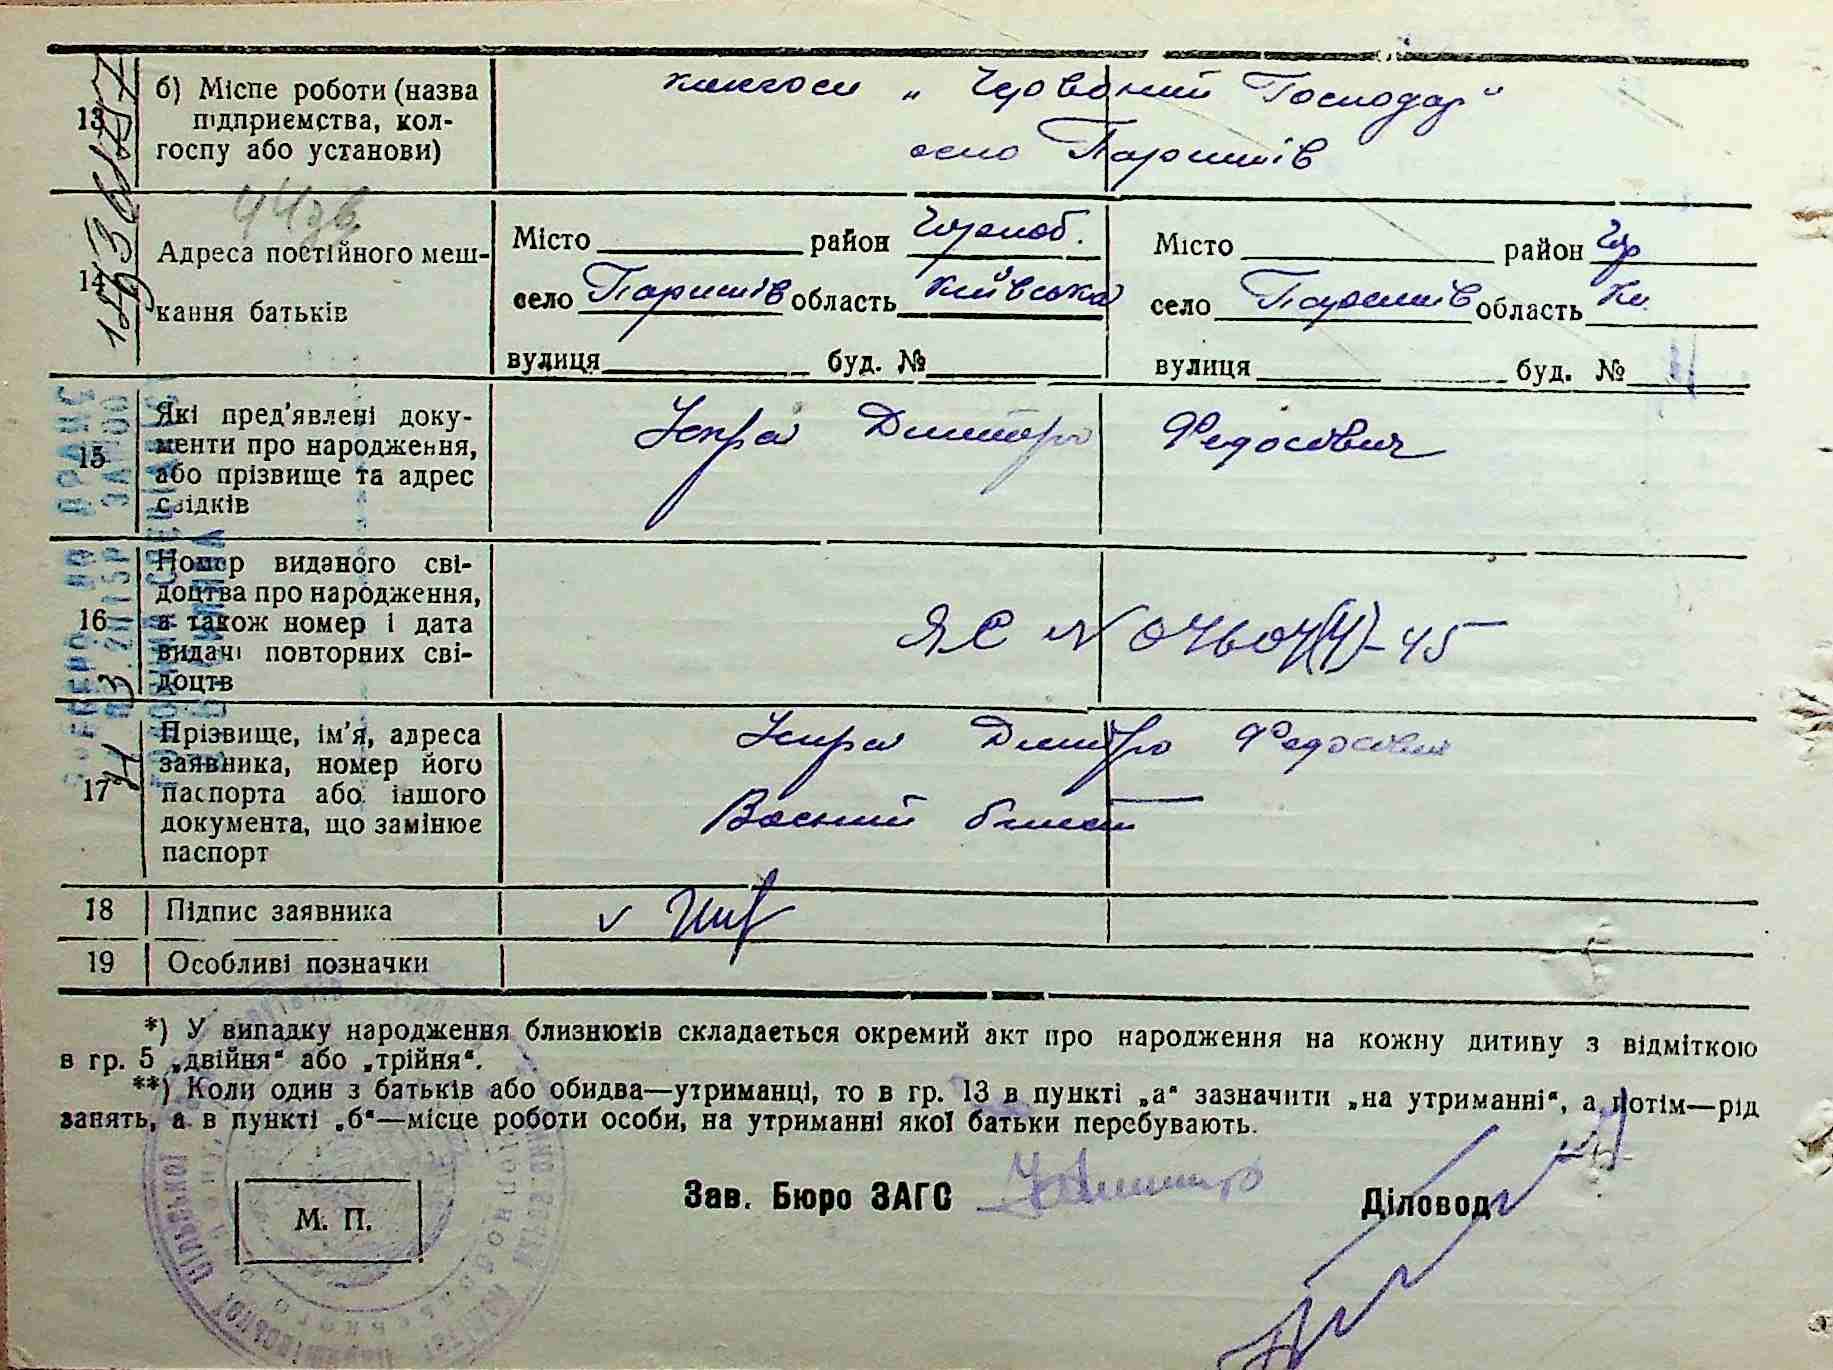 13
б) Міспе роботи (назва
підприємства, кол-
госпу або установи)
колгосп „Червоний Господар"
село Паришів
14
Адреса постійного меш-
кання батьків
Місто район Чорноб.
село Паришів область Київська
вулиця буд. №
Місто район Чор
село Паришів область Ки
вулиця буд. №
15
Які пред'явлені доку-
менти про народження,
або прізвище та адрес
свідків
Дмитро Федосович
16
Номер виданого сві-
доцтва про народження,
а також номер і дата
видачі повторних сві-
доцтв
ЯС N
17
Прізвище, ім'я, адреса
заявника, номер його
паспорта або іншого
документа, що замінює
паспорт
Дмитро Федосович
Воєний билет
18
Підпис заявника
19
Особливі позначки
*) У випадку народження близнюків складається окремий акт про народження на кожну дитину з відміткою
в гр. 5 „двійня" або „трійня".
**) Коли один з батьків або обидва—утриманці, то в гр. 13 в пункті „а" зазначити „на утриманні", а потім—рід
занять, а в пункті „б"—місце роботи особи, на утриманні якої батьки перебувають.
М. П.
Зав. Бюро ЗАГС
Діловод